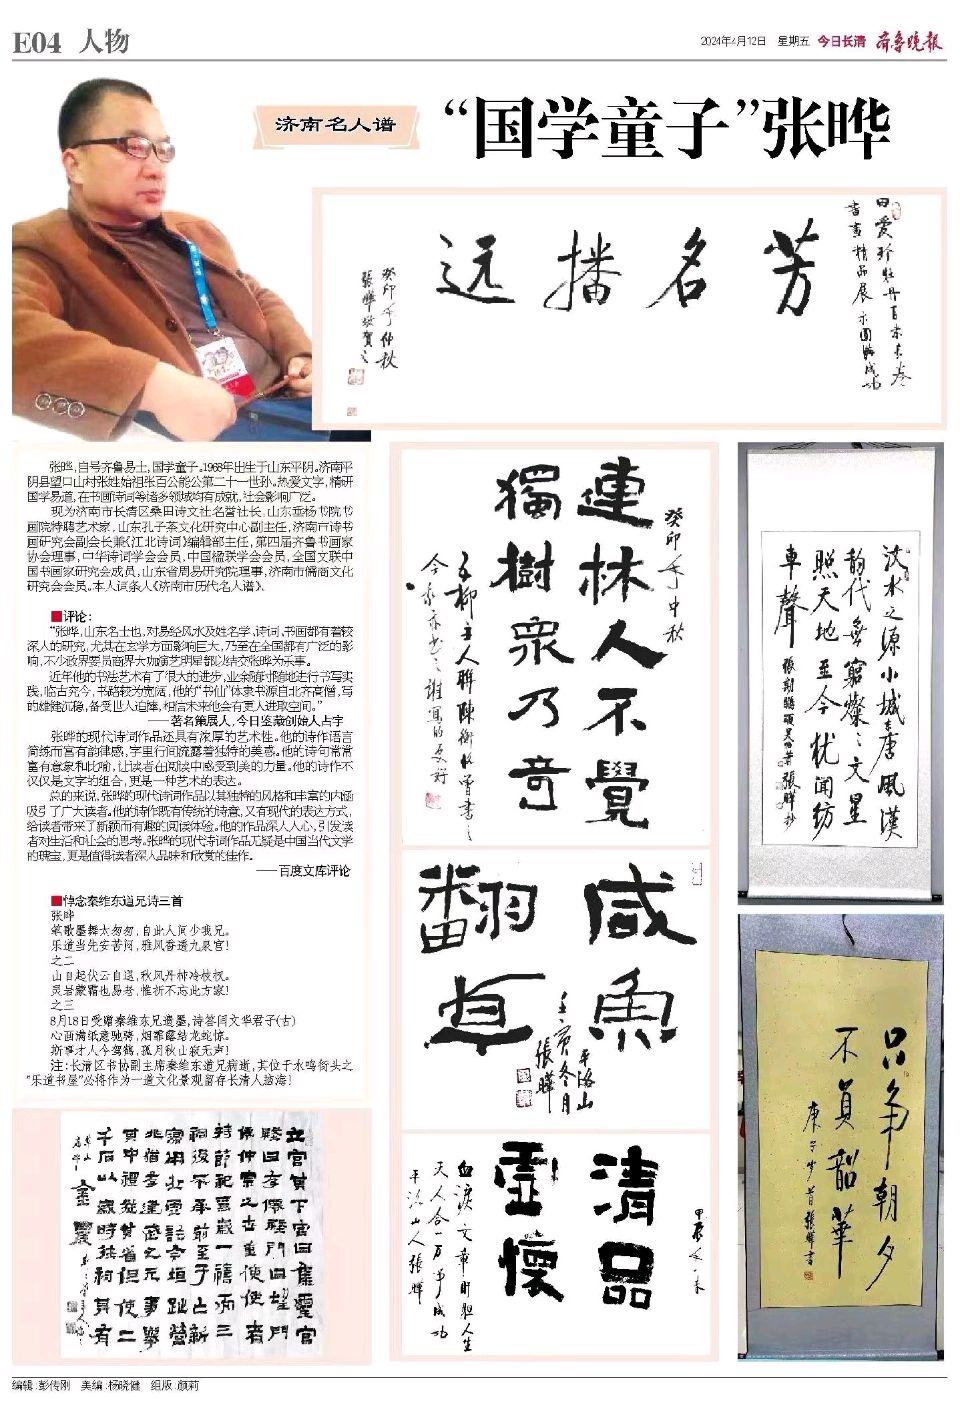 E04 人物
2024年4月12日 星期五 今日长清 齐鲁晚报
济南名人谱
“国学童子”张晔
芳名播远
癸卯年仲秋
张晔，自号齐鲁易士，国学童子。1968年出生于山东平阴。济南平
阴县望口山村张姓始祖张百公能公第二十一世孙。热爱文字，精研
国学易道，在书画诗词等诸多领域均有成就，社会影响广泛。
现为济南市长清区桑田诗文社名誉社长，山东垂杨书院书
画院特聘艺术家，山东孔子茶文化研究中心副主任，济南市诗书
画研究会副会长兼《江北诗词》编辑部主任，第四届齐鲁书画家
协会理事，中华诗词学会会员，中国楹联学会会员，全国文联中
国书画家研究会成员，山东省周易研究院理事，济南市儒商文化
研究会会员。本人词条入《济南市历代名人谱》。
■评论：
“张晔，山东名士也，对易经风水及姓名学、诗词、书画都有着较
深入的研究，尤其在玄学方面影响巨大，乃至在全国都有广泛的影
响，不少政界要员商界大咖演艺明星都以结交张晔为乐事。
近年他的书法艺术有了很大的进步，业余随时随地进行书写实
践，临古究今，书路较为宽阔，他的“书仙”体隶书源自北齐高僧，写
的雄健沉稳，备受世人追捧，相信未来他会有更大进取空间。”
——著名策展人，今日鉴藏创始人占宇
张晔的现代诗词作品还具有浓厚的艺术性。他的诗作语言
简练而富有韵律感，字里行间流露着独特的美感。他的诗句常常
富有意象和比喻，让读者在阅读中感受到美的力量。他的诗作不
仅仅是文字的组合，更是一种艺术的表达。
总的来说，张晔的现代诗词作品以其独特的风格和丰富的内涵
吸引了广大读者。他的诗作既有传统的诗意，又有现代的表达方式，
给读者带来了新颖而有趣的阅读体验。他的作品深入人心，引发读
者对生活和社会的思考。张晔的现代诗词作品无疑是中国当代文学
的瑰宝，更是值得读者深入品味和欣赏的佳作。
——百度文库评论
■悼念秦维东道兄诗三首
张晔
笔歌墨舞太匆匆，自此人间少我兄。
乐道当先安苦问，雅风香透九泉宫！
之二
山自起伏云自退，秋风丹柿冷枝杈。
灵岩蒙霜也易老，惟祈不忘此方家！
之三
8月18日受赠秦维东兄遗墨，诗答同文华君子（古）
心画满纸意驰骋，烟霏露结龙蛇惊。
斯事才人今驾鹤，孤月秋山寂无声！
注：长清区书协副主席秦维东道兄病逝，其位于水鸣街头之
“乐道书屋”必将作为一道文化景观留存长清人脑海！
連林人不覺
獨樹眾乃奇
癸卯年中秋
咸魚
翻身
壬寅冬月
張曄
清品
靈懷
甲辰年
血淚文章肝胆人生
天人合一万事成功
平洛山人張曄
汶水之源小城春唐風漢
韵代無窮燦之文星
照天地至今犹闻纺
車聲
只争朝夕
不負韶華
庚子岁首張曄書
编辑：彭传刚 美编：杨晓健 组版：颜莉